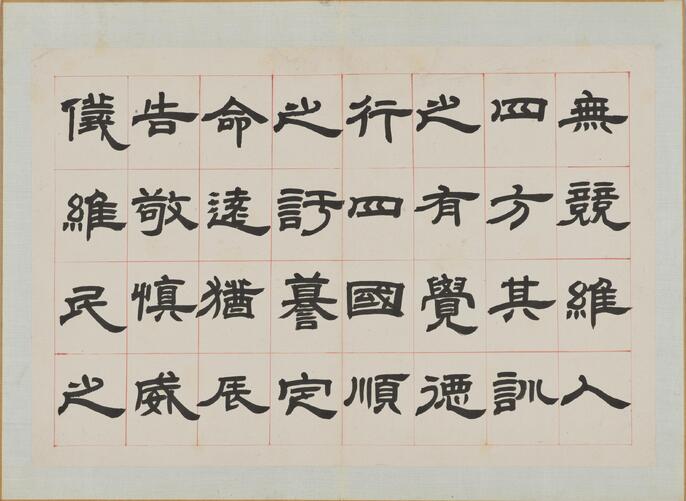 無競維人
四方其訓
之有覺德
行四國順
之訏謩定
命遠猶辰
告敬慎威
儀維民之